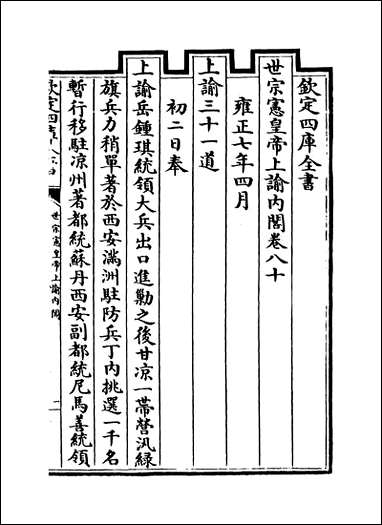 欽定四庫全書
世宗憲皇帝上諭內閣卷八十
雍正七年四月
上諭三十一道
初二日奉
上諭岳鍾琪統領大兵出口進勦之後甘凉一帶營汛緑
旗兵力稍單著於西安滿洲駐防兵丁內挑選一千名
暫行移駐凉州著都統蘇丹西安副都統尼馬善統領
欽定四庫全書
世宗憲皇帝上諭內閣